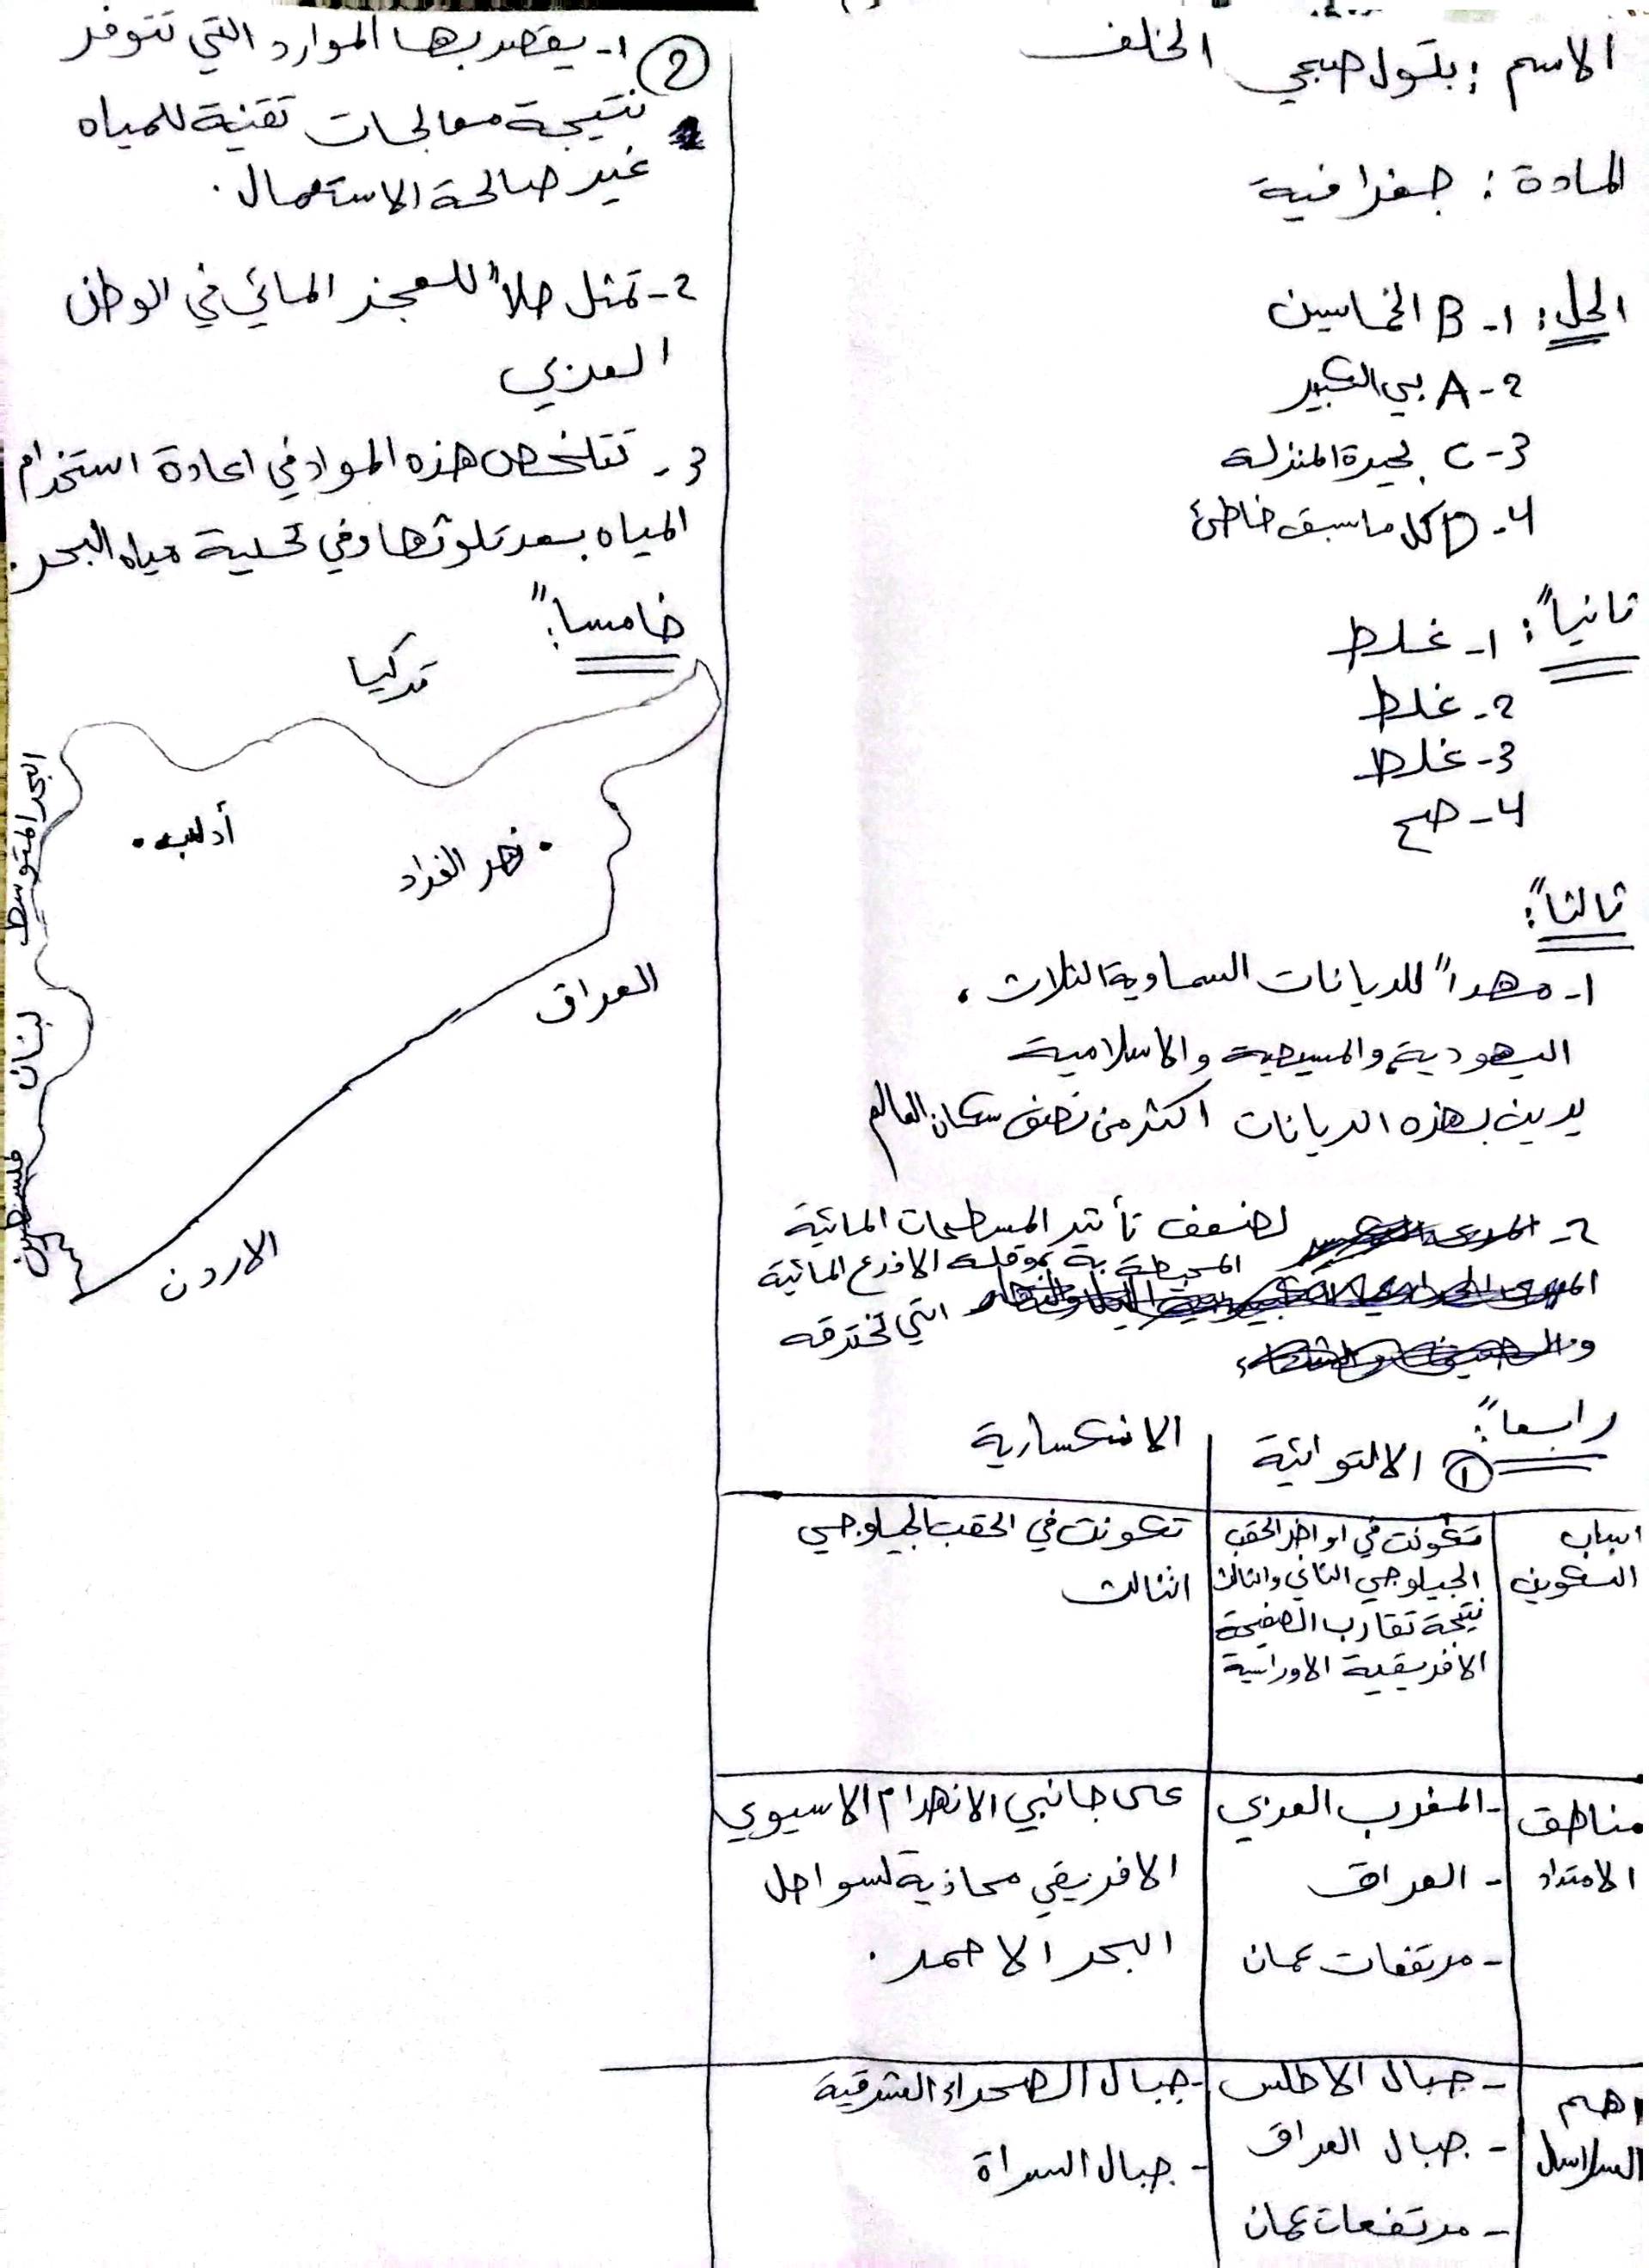 الاسم : بتول صبحي الخلف
المادة : جغرافية
الحل : 1- B الخماسين
2- A بي الكبير
3- C بحيرة المنزلة
4- D كل ماسبق خاطئ
ثانياً :
1- غلط
2- غلط
3- غلط
4- صح
ثالثاً :
1- مهداً للديانات السماوية الثلاث ،
اليهودية والمسيحية والاسلامية
يدين بهذه الديانات اكثر من نصف سكان العالم
2- لضعف تأثير المسطحات المائية
المحيطة به وقلة الاذرع المائية
التي تخترقه
رابعاً :
1 الالتوائية | الانكسارية
اسباب التكوين
تكونت في اواخر الحقب
الجيلوجي الثاني والثالث
نتيجة تقارب الصفيحة
الافريقية الاوراسية
تكونت في الحقب الجيلوجي
الثالث
مناطق الامتداد
- المغرب العربي
- العراق
- مرتفعات عمان
على جانبي الانهدام الاسيوي
الافريقي محاذية لسواحل
البحر الاحمر .
اهم السلاسل
- جبال الاطلس
- جبال العراق
- مرتفعات عمان
- جبال الصحراء الشرقية
- جبال السراة
2 1- يقصد بها الموارد التي تتوفر
نتيجة معالجات تقنية للمياه
غير صالحة الاستعمال .
2- تمثل حلاً للعجز المائي في الوطن
العربي
3- تتلخص هذه المواد في اعادة استخدام
المياه بعد تلوثها وفي تحلية مياه البحر .
خامساً :
تركيا
البحر المتوسط
أدلب .
. نهر الفرات
العراق
لبنان
فلسطين
الاردن